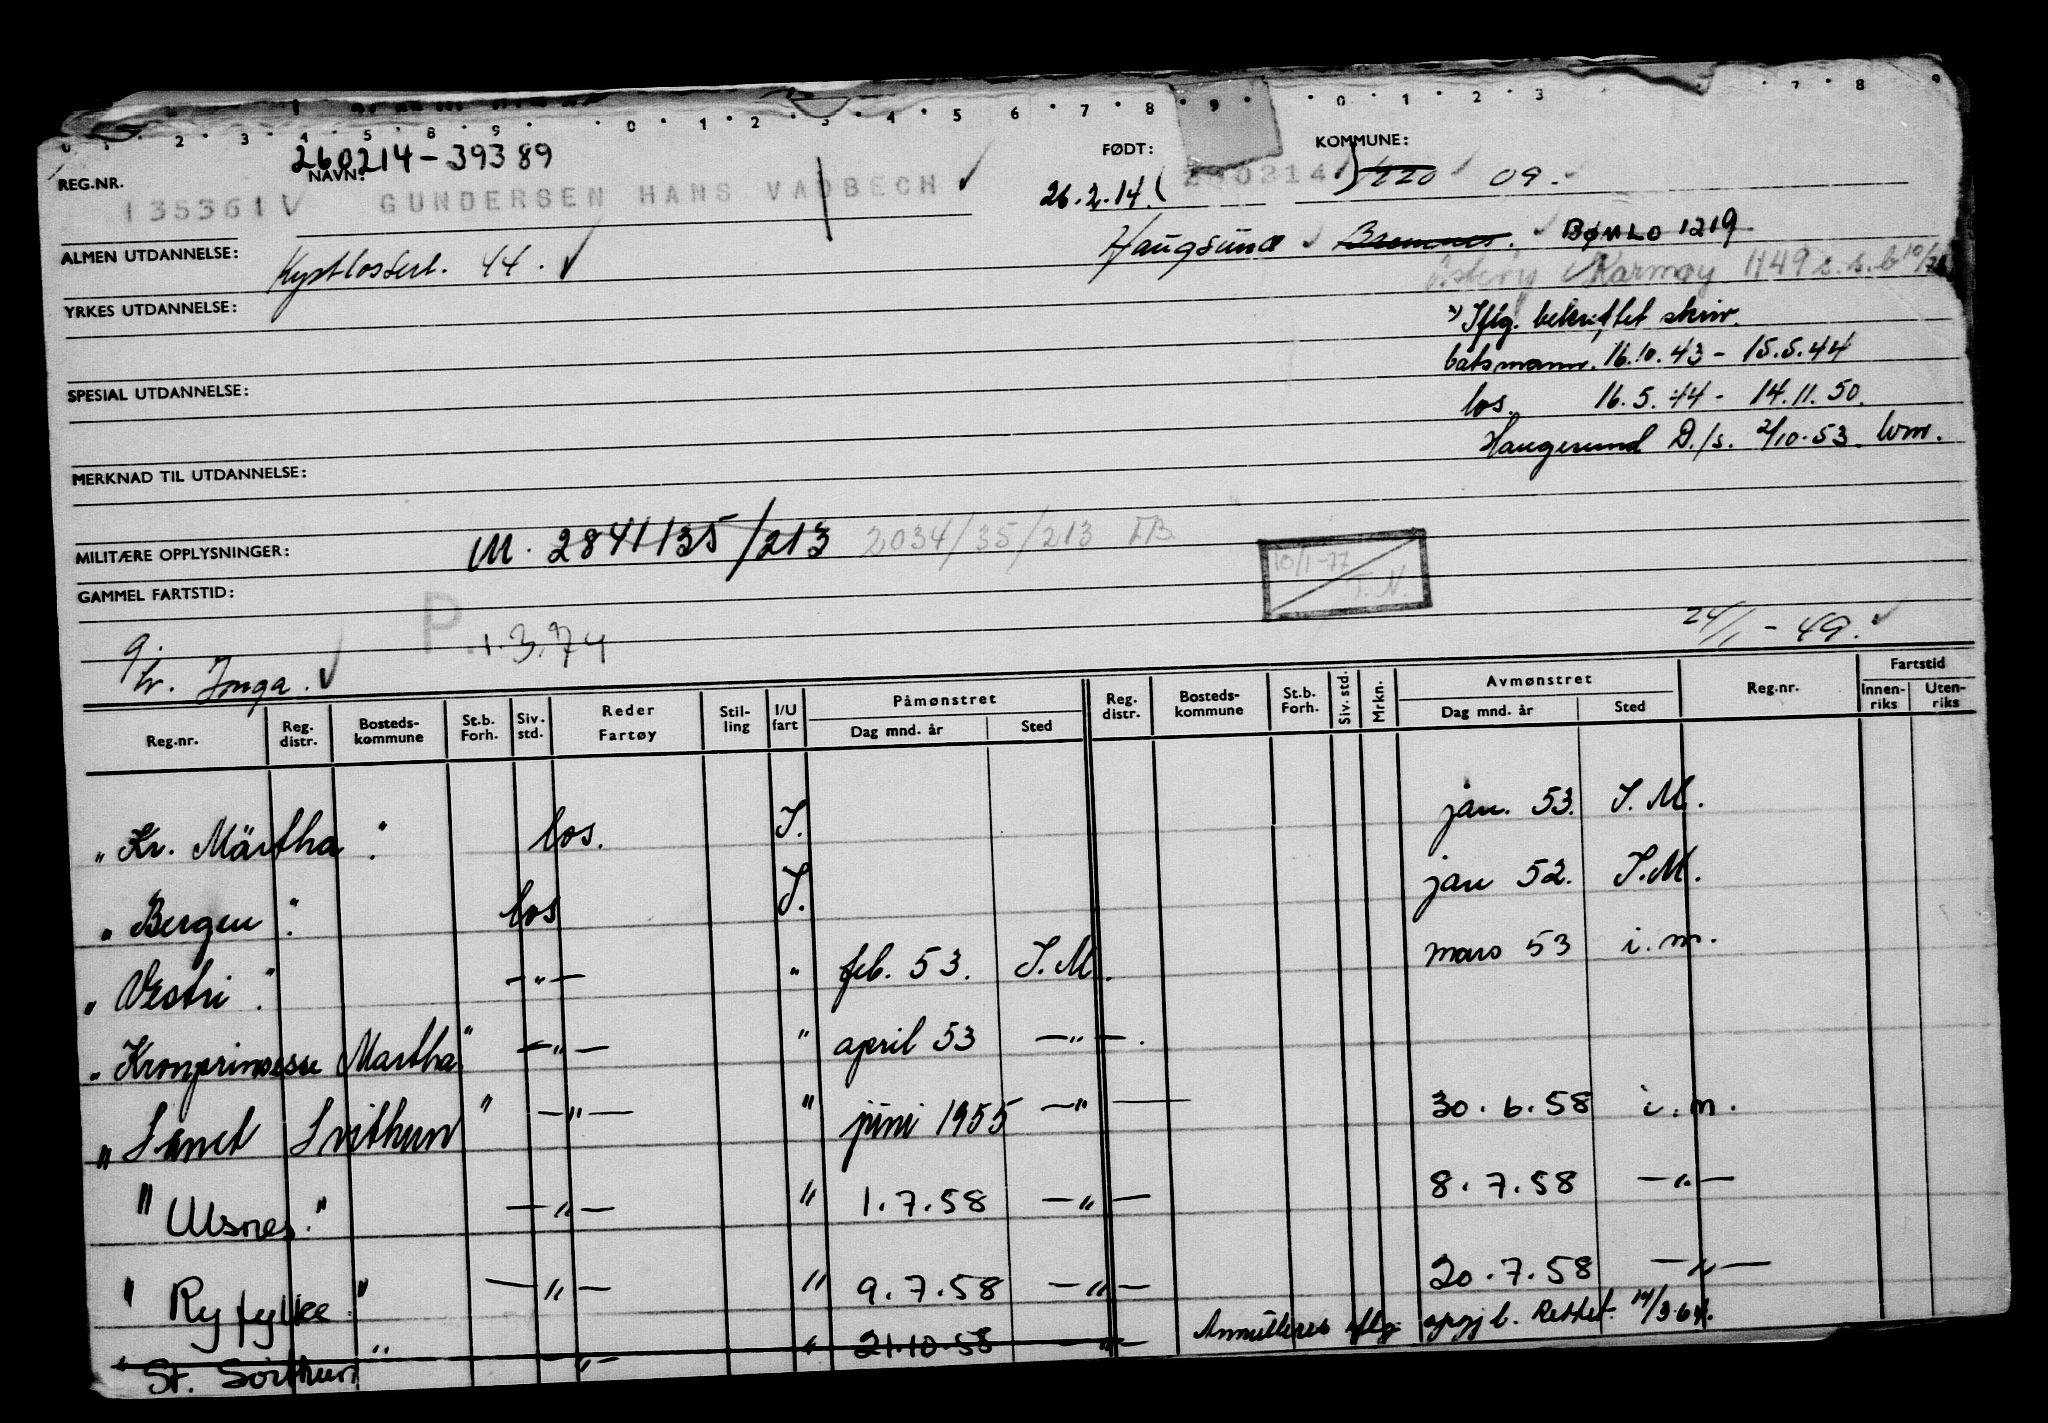 0 1 2 3 4 5 6 7 8 9 0 1 2 3 4 5 6 7 8 9 0 1 2 3 7 8 9
260214-39389
REG.NR. NAVN: FØDT: KOMMUNE:
135361 V GUNDERSEN HANS VADBECH ✓ 26.2.14. ( 260214 ) 1220 09.
ALMEN UTDANNELSE: Kystlossert. 44. ✓ Haugsund Bremnes. BØMLO 1219
Karmøy 1149 s.s.b 10/76
YRKES UTDANNELSE: x) Iflg. bekreftet skriv.
båtsmann. 16.10.43 - 15.5.44
SPESIAL UTDANNELSE: los. 16.5.44 - 14.11.50.
Haugesund D./s. 2/10.53. wm.
MERKNAD TIL UTDANNELSE:
MILITÆRE OPPLYSNINGER: M. 2841/35/213 2034/35/213 EB
10/1-77 T.N.
GAMMEL FARTSTID:
P. 1.3.74 24/1 - 49. ✓
g. hr. Inga. ✓
Reg.nr. Reg. distr. Bosteds-kommune St.b. Forh. Siv. std. Reder Fartøy Stil-ling I/U fart Påmønstret Dag mnd. år Sted Reg. distr. Bosteds-kommune St.b. Forh. Siv. std. Mrkn. Avmønstret Dag mnd. år Sted Reg.nr. Fartstid Innen-riks Uten-riks
" Kr. Märtha " los. I. jan. 53. I.M.
" Bergen " los I. jan 52. I.M.
" Vestri " — " — " feb. 53. I.M. mars 53 i.m.
" Kronprinsesse Martha " — " — " april 53 — " —.
" Sanct Svithun " — " — " juni 1955 — " — 30.6.58 i.m.
" Ulsnes " — " — " 1.7.58 — " — 8.7.58 — " —
" Ryfylke " — " — " 9.7.58 — " — 20.7.58 — " —
" St. Svithun " — " — " 21.10.58 — " — Annulleres iflg. oppgj b. Rettet. 14/3-64.